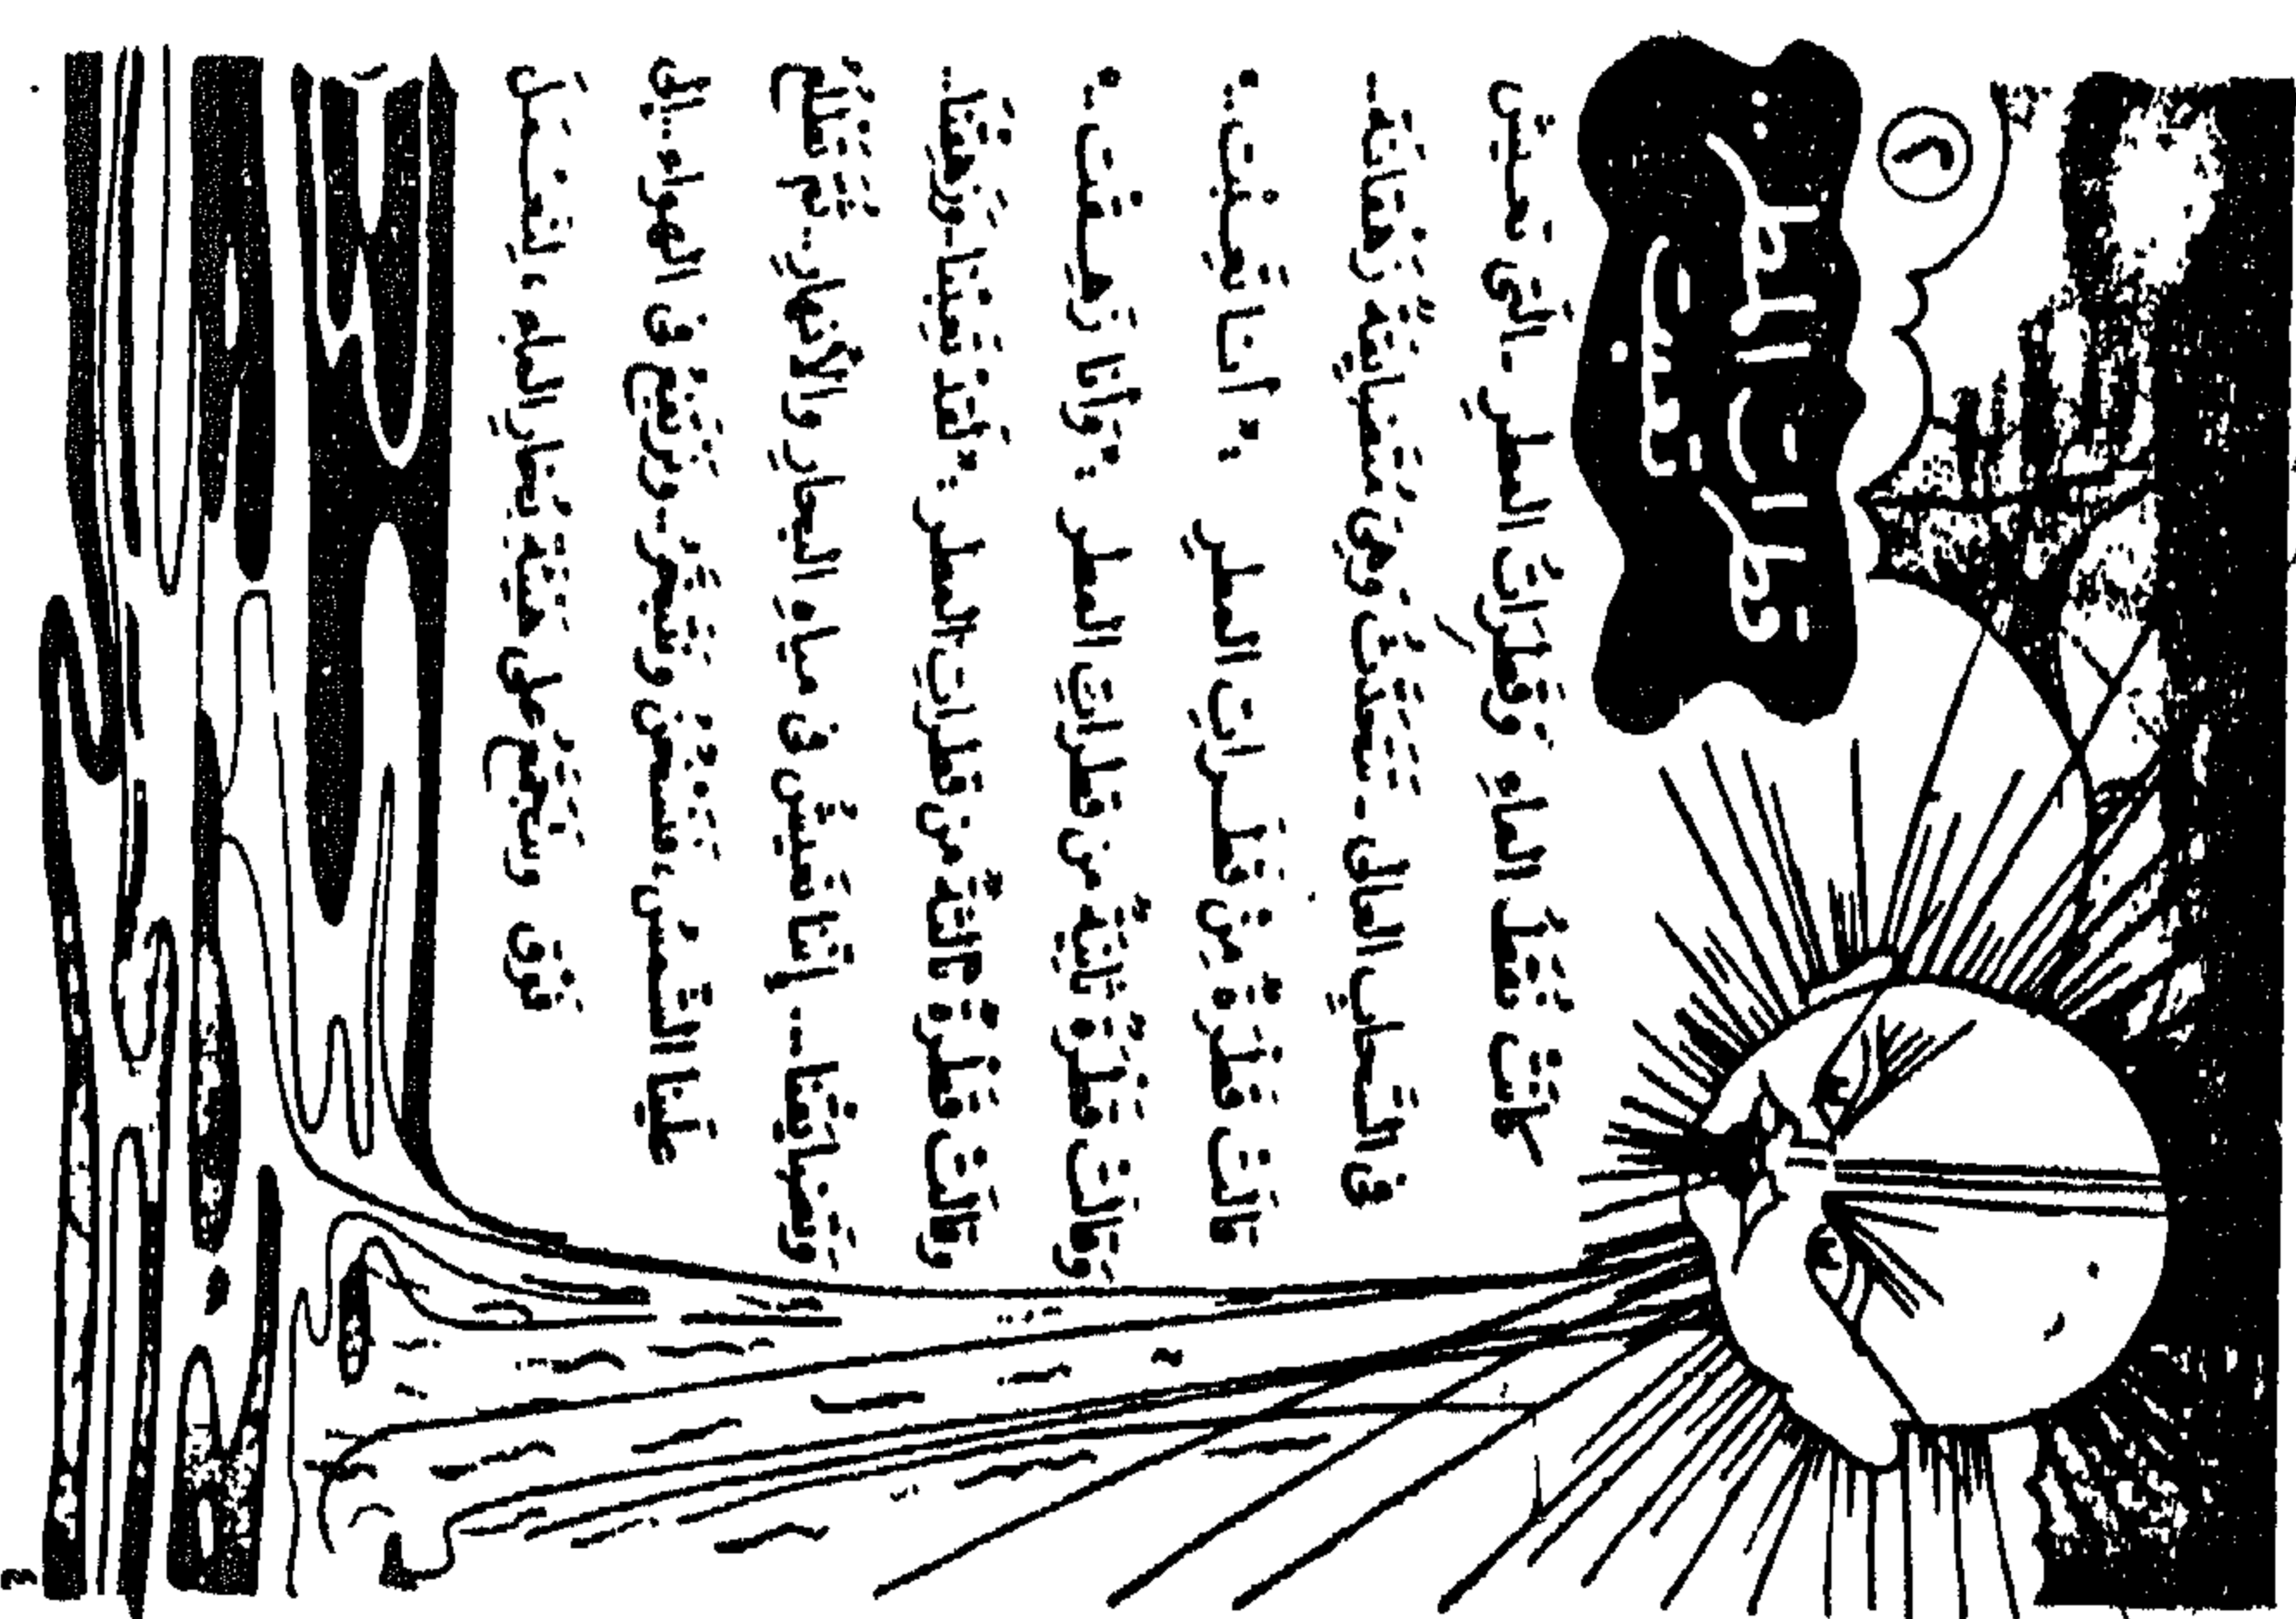 ٢
قطرات المطر
كانت نقط الماء وقطرات المطر - التي تعيش
في السحاب العالي - تتحدث وهي متضايقة زهقانة..
قالت قطرة من قطرات المطر: "أنا تعبت"..
وقالت قطرة ثانية من قطرات المطر: "وأنا زهقت"..
وقالت قطرة ثالثة من قطرات المطر: "لقد تعبنا - وزهقنا..
وتضايقنا... إننا نعيش في مياه البحار والأنهار.. ثم تطلع
علينا الشمس، فنسخن ونتبخر.. ونرتفع في الهواء.. إلى
فوق ونتجمع على هيئة بخار الماء، لنعمل
3